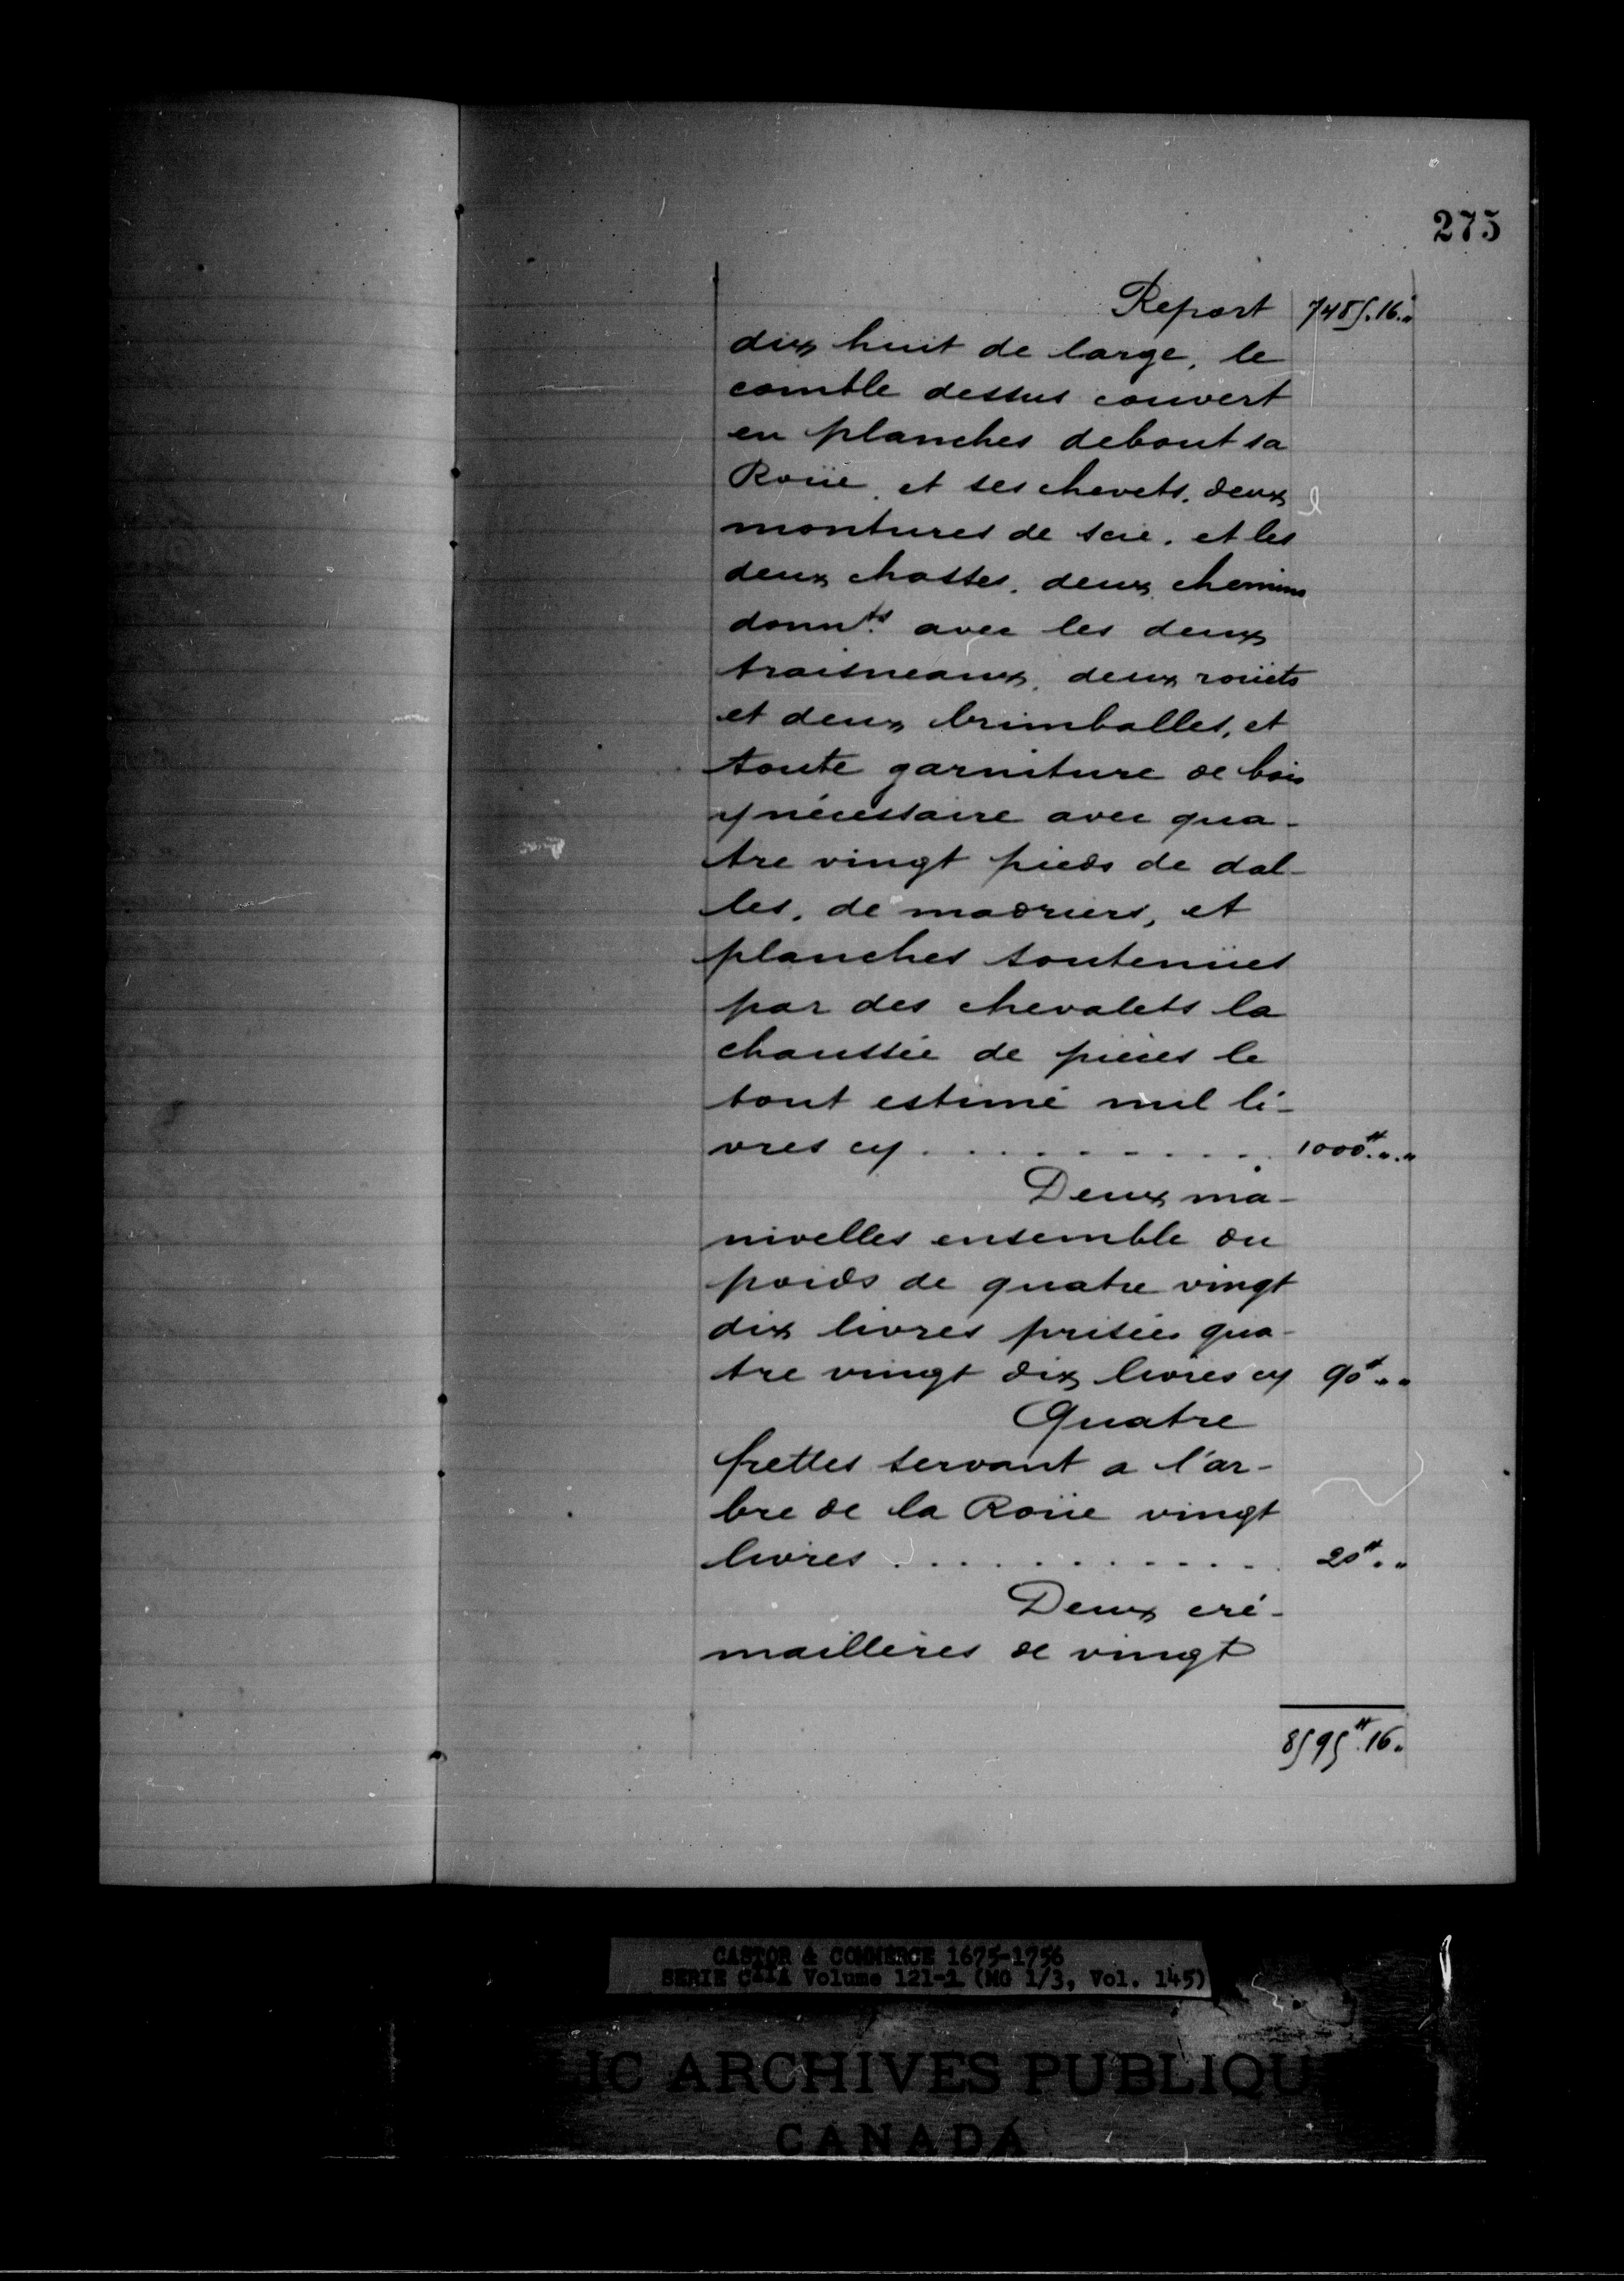 275
Report 7485.16.„
dix huit de large, le
comble dessus couvert
en planches debout sa
Roüe, et ses chevets, deux
montures de scie, et les
deux chasses, deux chemins
donnts avec les deux
traisneaux, deux roüets
et deux brimballes, et
toute garniture de bois
y nécessaire avec qua-
tre vingt pieds de dal-
les, de madriers, et
planches soutenües
par des chevalets la
chaussée de pièces le
tout estimé mil li-
vres cy . . . . . . . . . . 1000#.„.„
Deux ma-
nivelles ensemble du
poids de quatre vingt
dix livres prisées qua-
tre vingt dix livres cy 90#.„.„
Quatre
frettes servant a l'ar-
bre de la Roüe vingt
livres . . . . . . . . . . . 20#.„.„
Deux cré-
maillères de vingt
8595#.16.„
CASTOR & COMMERCE 1675-1756
SERIE C11A Volume 121-1 (MG 1/3, Vol. 145)
IC ARCHIVES PUBLIQU
CANADA